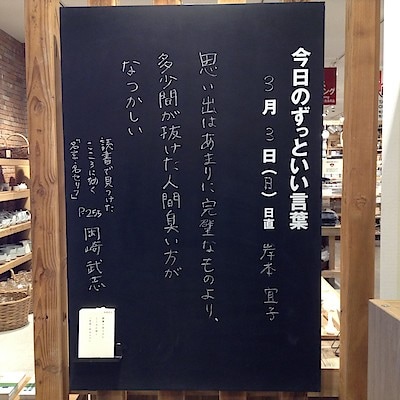 今日のずっといい言葉
3月3日(月)日直 岸本 宜子
思い出はあまりに完璧なものより、
多少間が抜けた人間臭い方が
なつかしい
読書で見つけた
こころに効く
「名言・名セリフ」
P.255 岡崎 武志